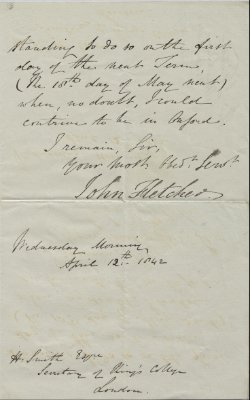 standing to do so on the first
day of the next Term,
(The 18th day of May next)
when, no doubt, I could
contrive to be in Oxford.
I remain, Sir,
Your most Obdt. Servt.
John Fletcher
Wednesday Morning
April 12th 1842
H. Smith Esqre
Secretary of King's College
London.